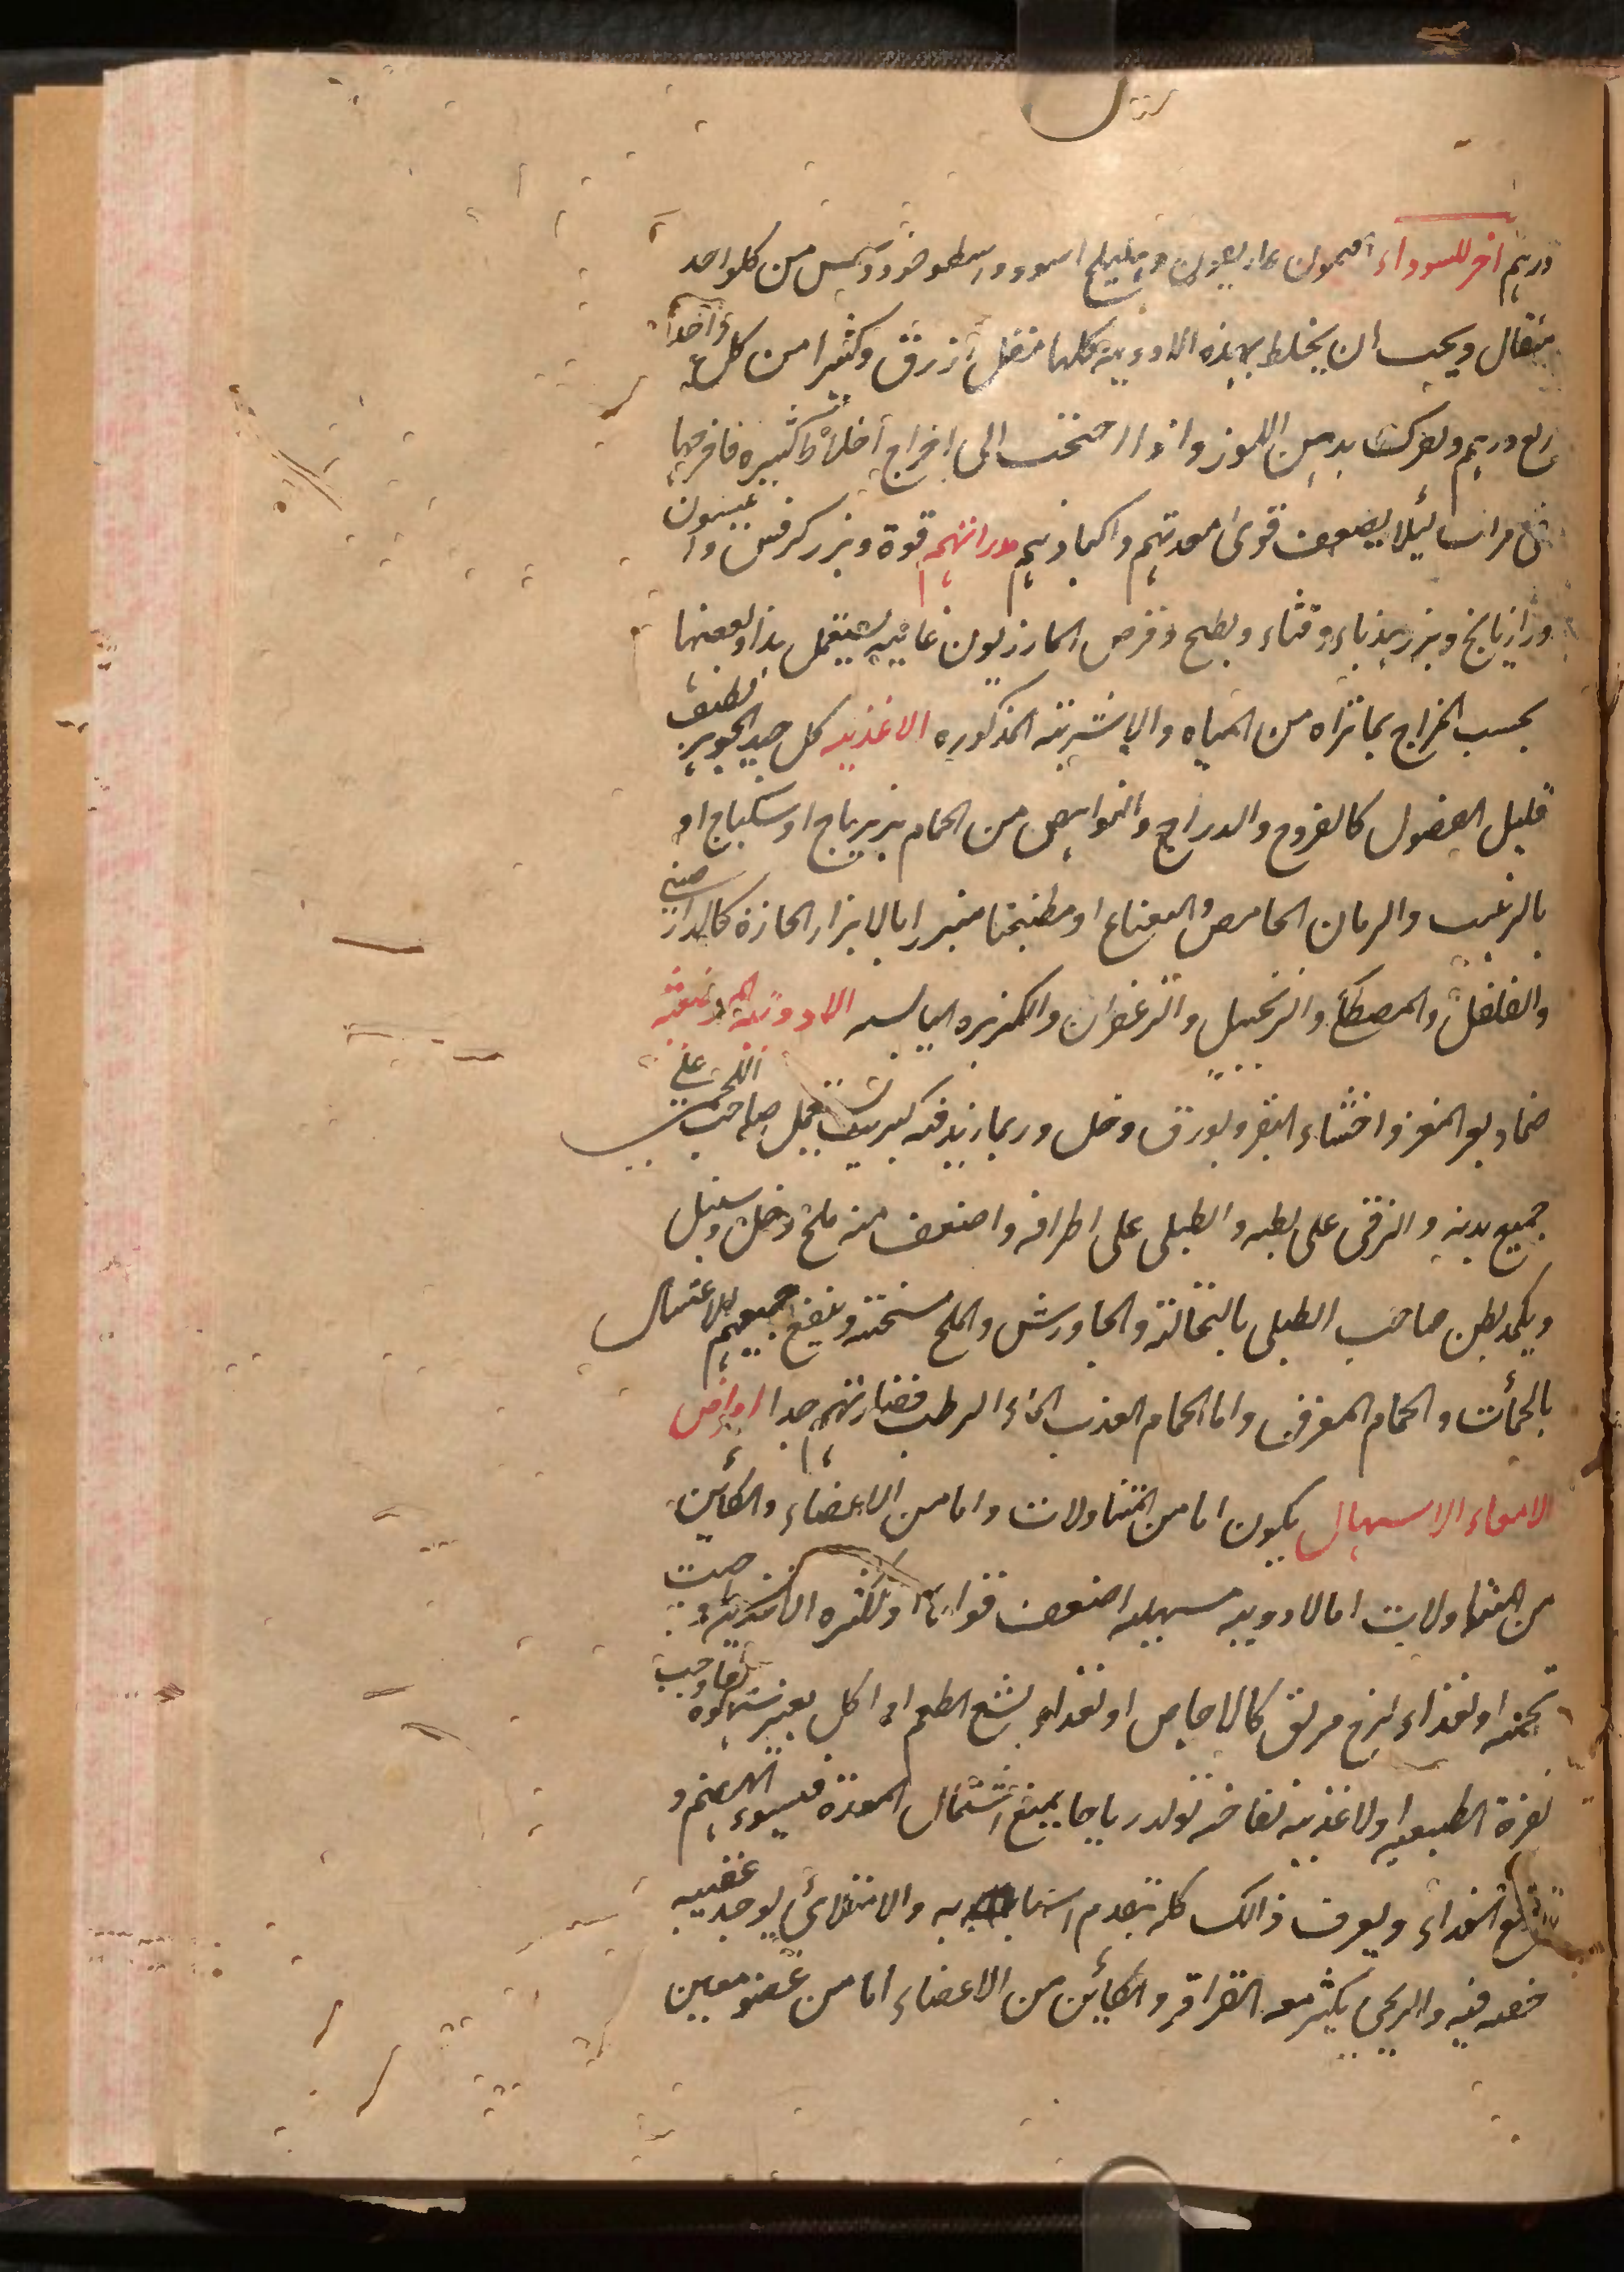 درهم اخر للسوداء افتيمون غاريقون وهليلج اسود واسطوخودوس من كلواحد
مثقال ويجب ان يخلط بهذه الادوية كلها مقل ازرق وكثيرا من كل واحد
ربع درهم ويعرك بدهن اللوز واذا احتجت الى اخراج اخلاط كثيره فاخرجها
فى مرات ليلا يضعف قوى معدتهم واكبادهم مدراتهم قوة وبزر كرفس وانيسون
ورازيانج وبزر هندباء وقثاء وبطيخ وقرص المازريون غاية يستعمل هذا وبعضها
بحسب المزاج بما تراه من المياه والاشربة المذكوره الاغذيه كل جيد الجوهر لطيف
قليل الفضول كالفروج والدراج والنواهض من الحمام بزيرباج او سكباج او
بالزبيب والرمان الحامض والنعناع او مطبخنا مبزرا بالابزار الحارة كالدارصيني
والفلفل والمصطكى والزنجبيل والزعفران والكزبره اليابسه الادوية الموضعية
ضماد بعر المعز واخثاء البقر وبورق وخل وربما زيد فيه كبريت يستعمل صاحب اللحمى على
جميع بدنه والزقى على بطنه والطبلى على اطرافه واضعف منه ملح وخل وسنبل
ويكمد بطن صاحب الطبلى بالنخالة والجاورش والملح مسخنة وينفع جميعهم الاغتسال
بالحمأت والحمام المعرق واما الحمام العذب الماء الرطب فضار بهم جدا امراض
الامعاء الاسهال يكون اما من المتناولات واما من الاعضاء والكأين
من المتناولات اما لادويه مسهله اضعف قواها ولكثره الاغذية
تخمه او لغذاء لزج مزلق كالاجاص او لغذاء بشع الطعم او اكل بغير شهوه
لقوة الطبيعه او لاغذية نفاخه تولد رياحا يمنع اشتمال المعدة فيسوء الهضم و
الغذاء ويعرف ذالك كله بتقدم اسبابه والامتلائى يوجد عقيبه
خفه فيه والريحى يكثر معه القراقر والكأين من الاعضاء اما من عضو معين